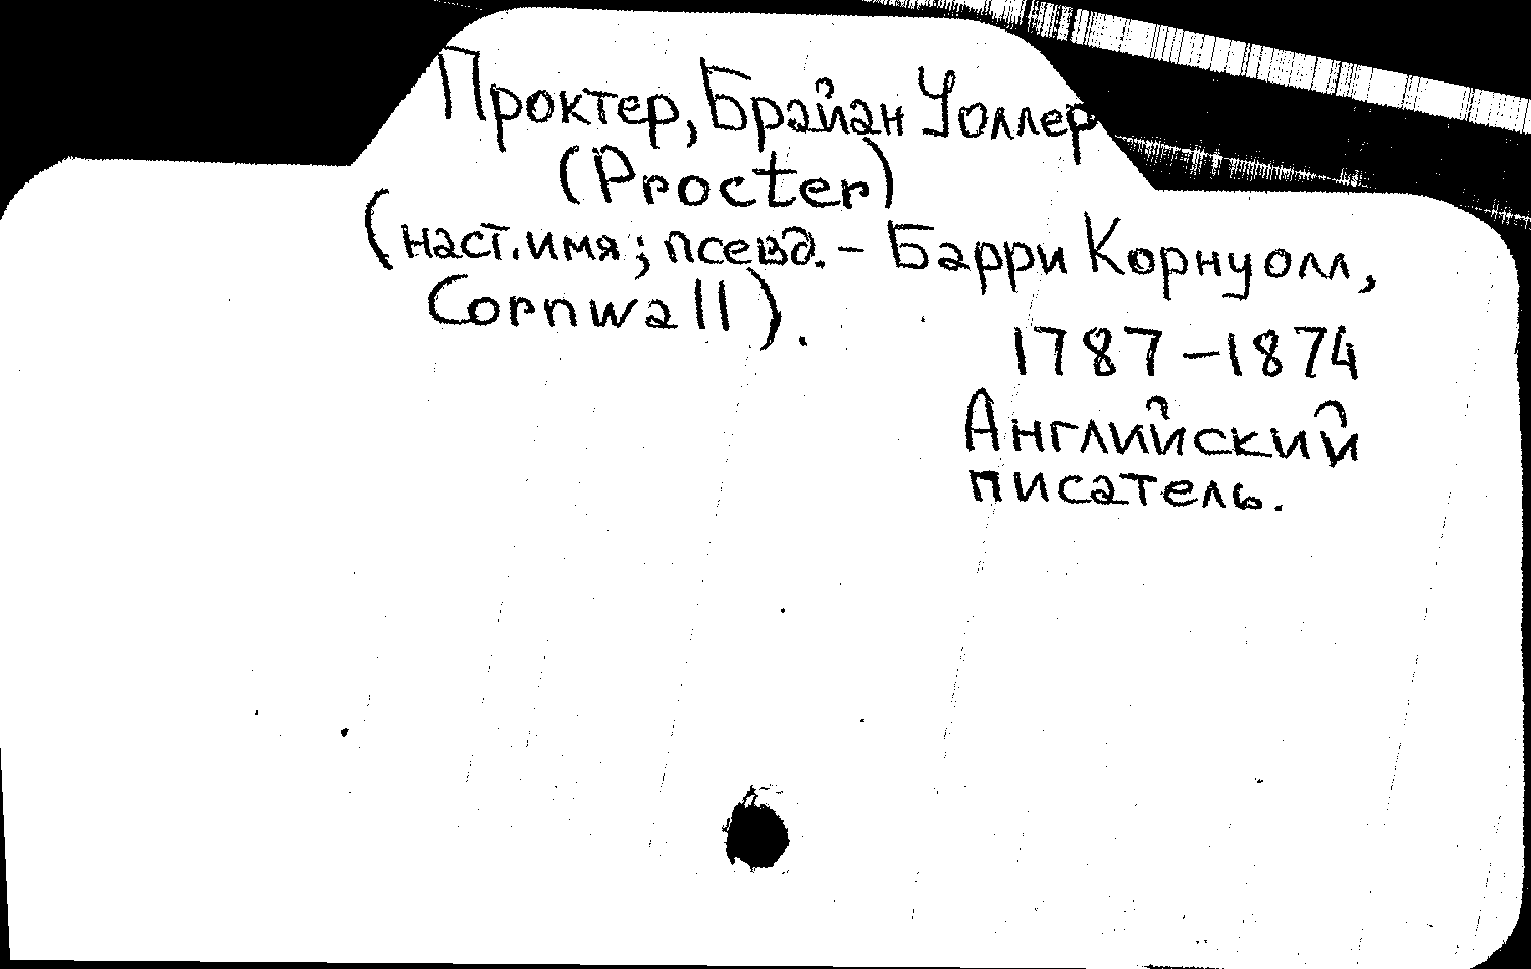 Проктер, Брайан Уоллер
(Procter)
(наст. имя; псевд. - Барри Корнуолл,
Cornwall).
1787-1874
Английский
писатель.